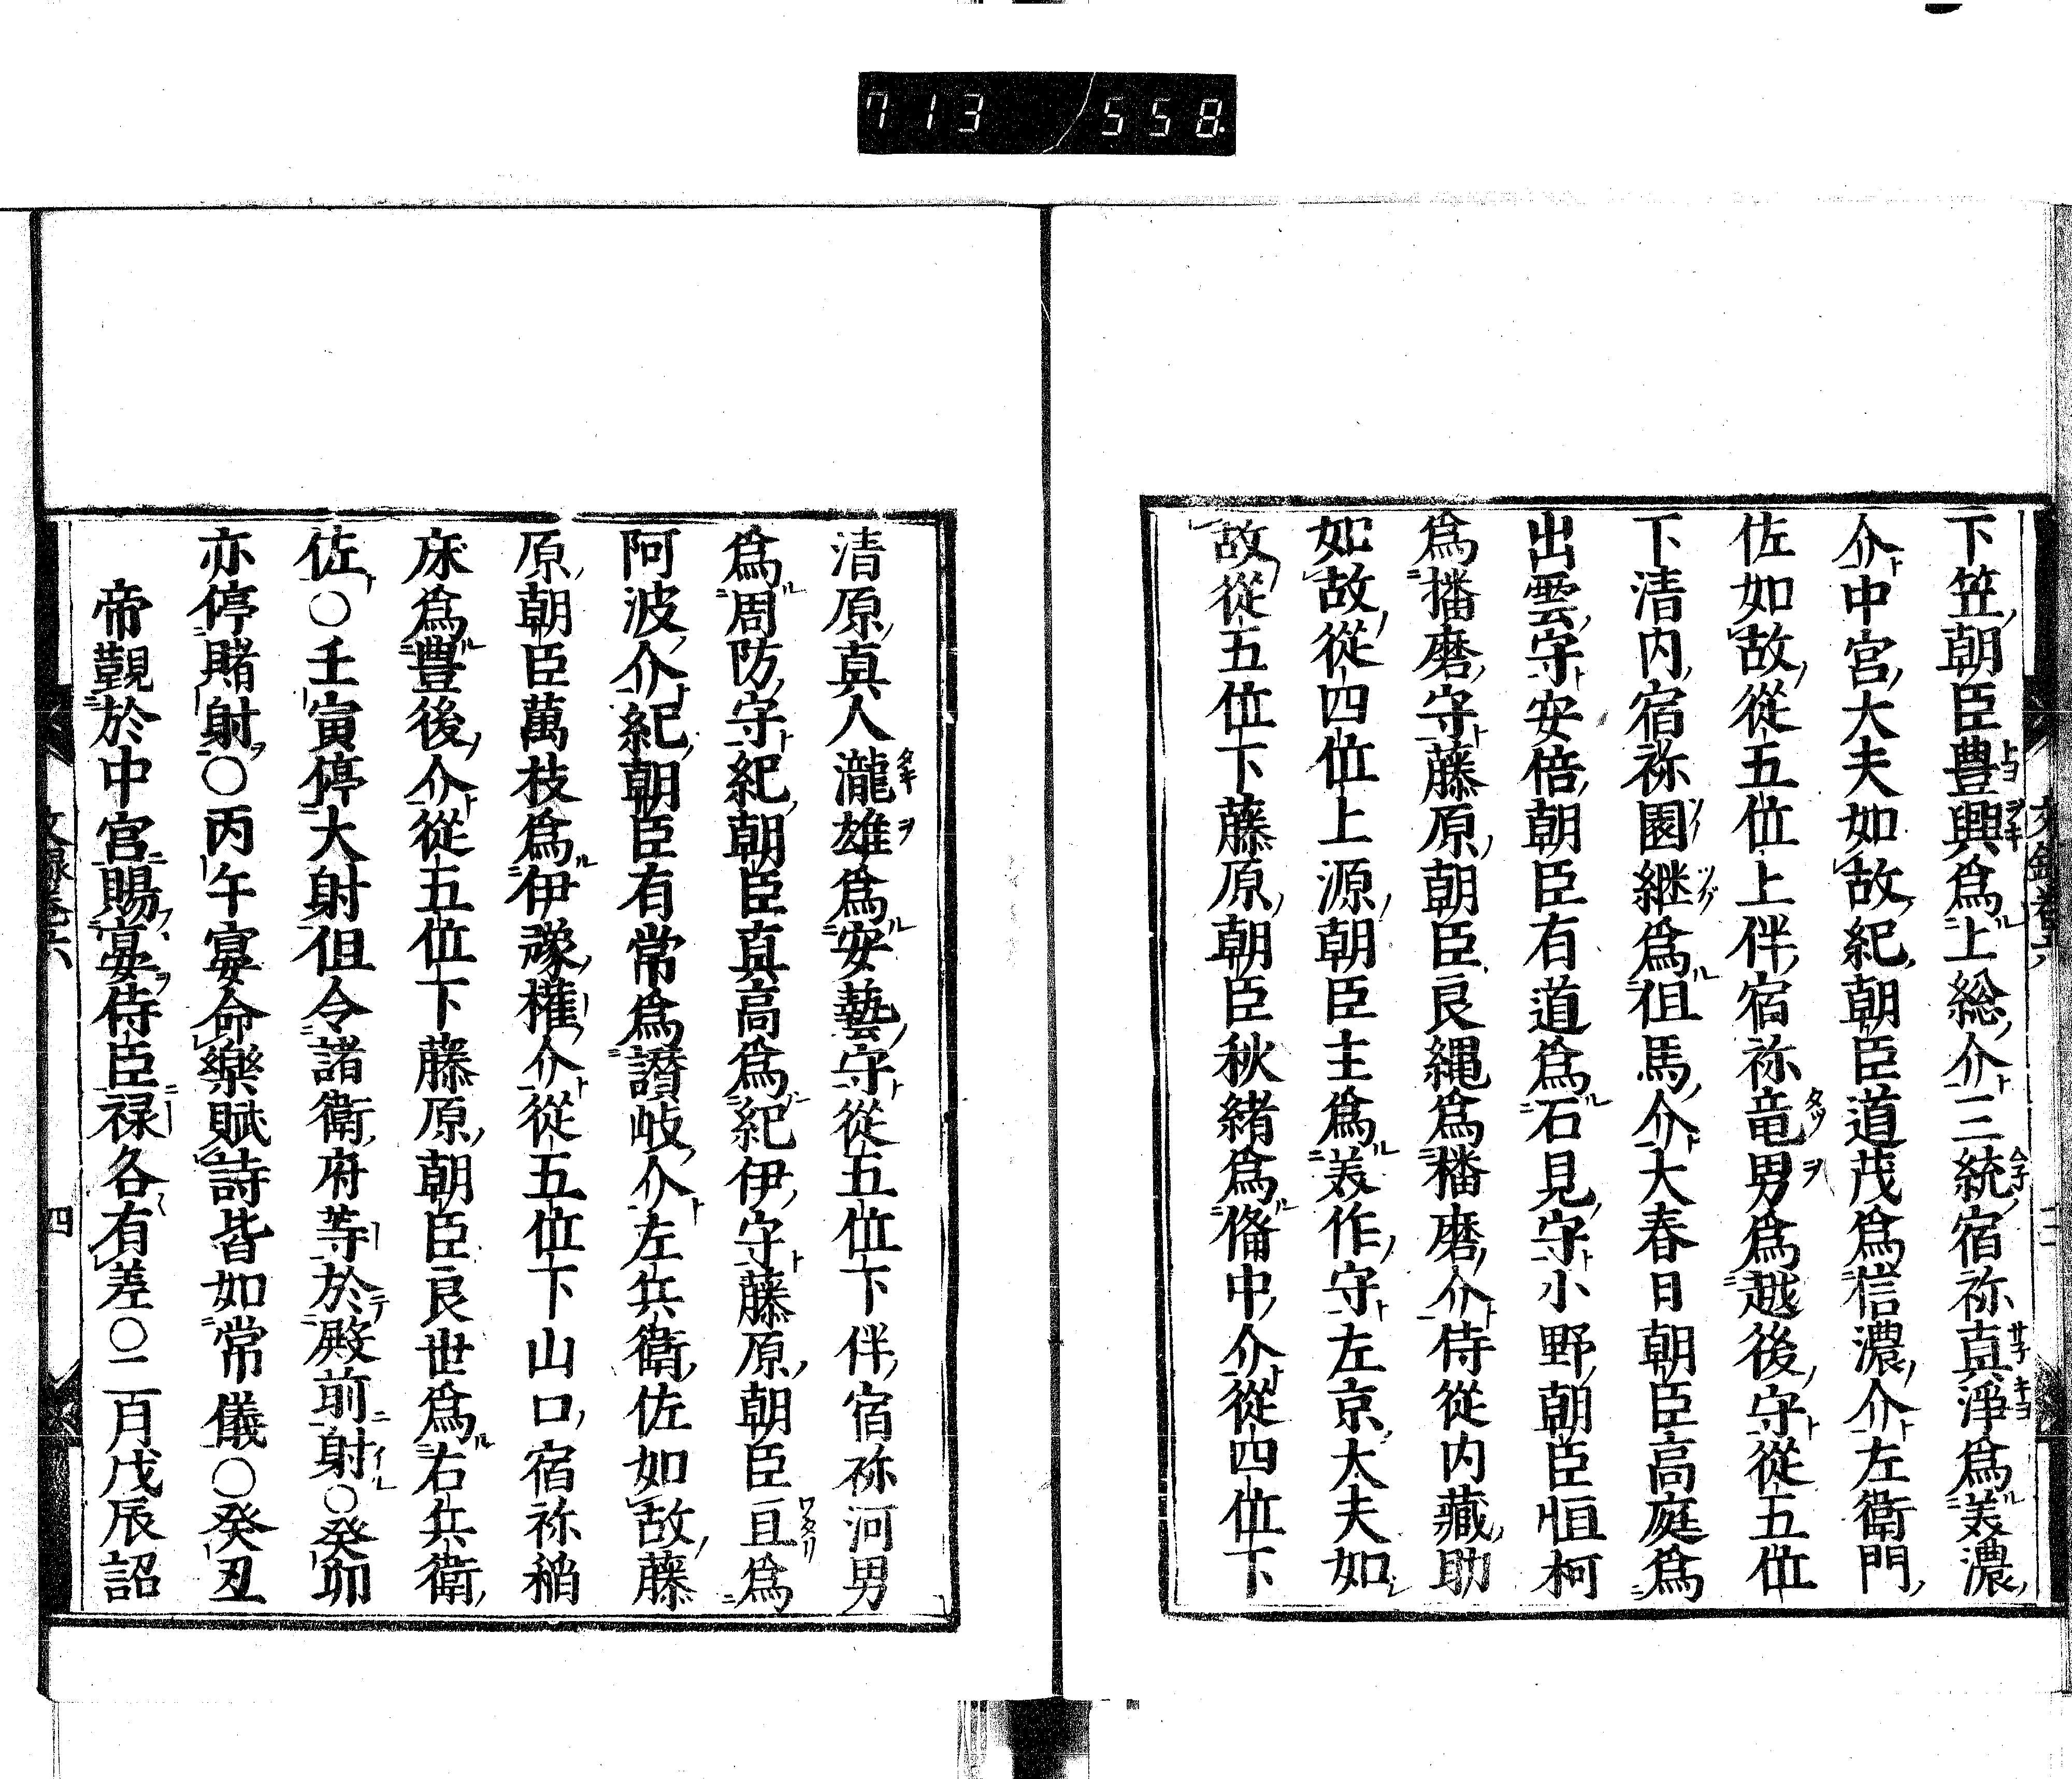 713 558.
下笠朝臣豊興為上総介三統宿祢真浄為美濃
介中宮大夫如故紀朝臣道茂為信濃介左衛門
佐如故従五位上伴宿祢竜男為越後守従五位
下清内宿祢園継為伹馬介大春日朝臣高庭為
出雲守安倍朝臣有道為石見守小野朝臣恒柯
為播磨守藤原朝臣良縄為播磨介侍従内蔵助
如故従四位上源朝臣主為美作守左京大夫如
故従五位下藤原朝臣秋緒為俻中介従四位下
清原真人瀧雄為安藝守従五位下伴宿祢河男
為周防守紀朝臣真高為紀伊守藤原朝臣亘為
阿波介紀朝臣有常為讃岐介左兵衛佐如故藤
原朝臣萬枝為伊豫権介従五位下山口宿祢稲
床為豊後介従五位下藤原朝臣良世為右兵衛
佐○壬寅停大射伹令諸衛府等於殿前射○癸卯
亦停賭射○丙午宴命樂賦詩皆如常儀○癸丑
帝覲於中宮賜宴侍臣禄各有差○二月戊辰詔
四